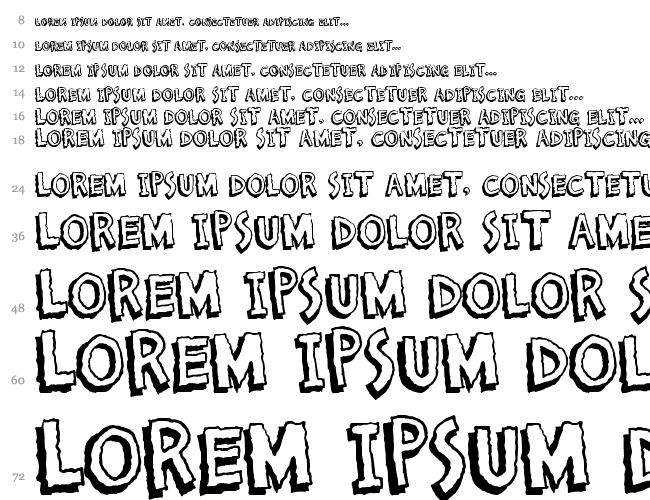 8 LOREM IPSUM DOLOR SIT AMET, CONSECTETUER ADIPISCING ELIT...
10 LOREM IPSUM DOLOR SIT AMET, CONSECTETUER ADIPISCING ELIT...
12 LOREM IPSUM DOLOR SIT AMET, CONSECTETUER ADIPISCING ELIT...
14 LOREM IPSUM DOLOR SIT AMET, CONSECTETUER ADIPISCING ELIT...
16 LOREM IPSUM DOLOR SIT AMET, CONSECTETUER ADIPISCING ELIT...
18 LOREM IPSUM DOLOR SIT AMET, CONSECTETUER ADIPISCING
24 LOREM IPSUM DOLOR SIT AMET, CONSECTETU
36 LOREM IPSUM DOLOR SIT AME
48 LOREM IPSUM DOLOR S
60 LOREM IPSUM DOL
72 LOREM IPSUM D